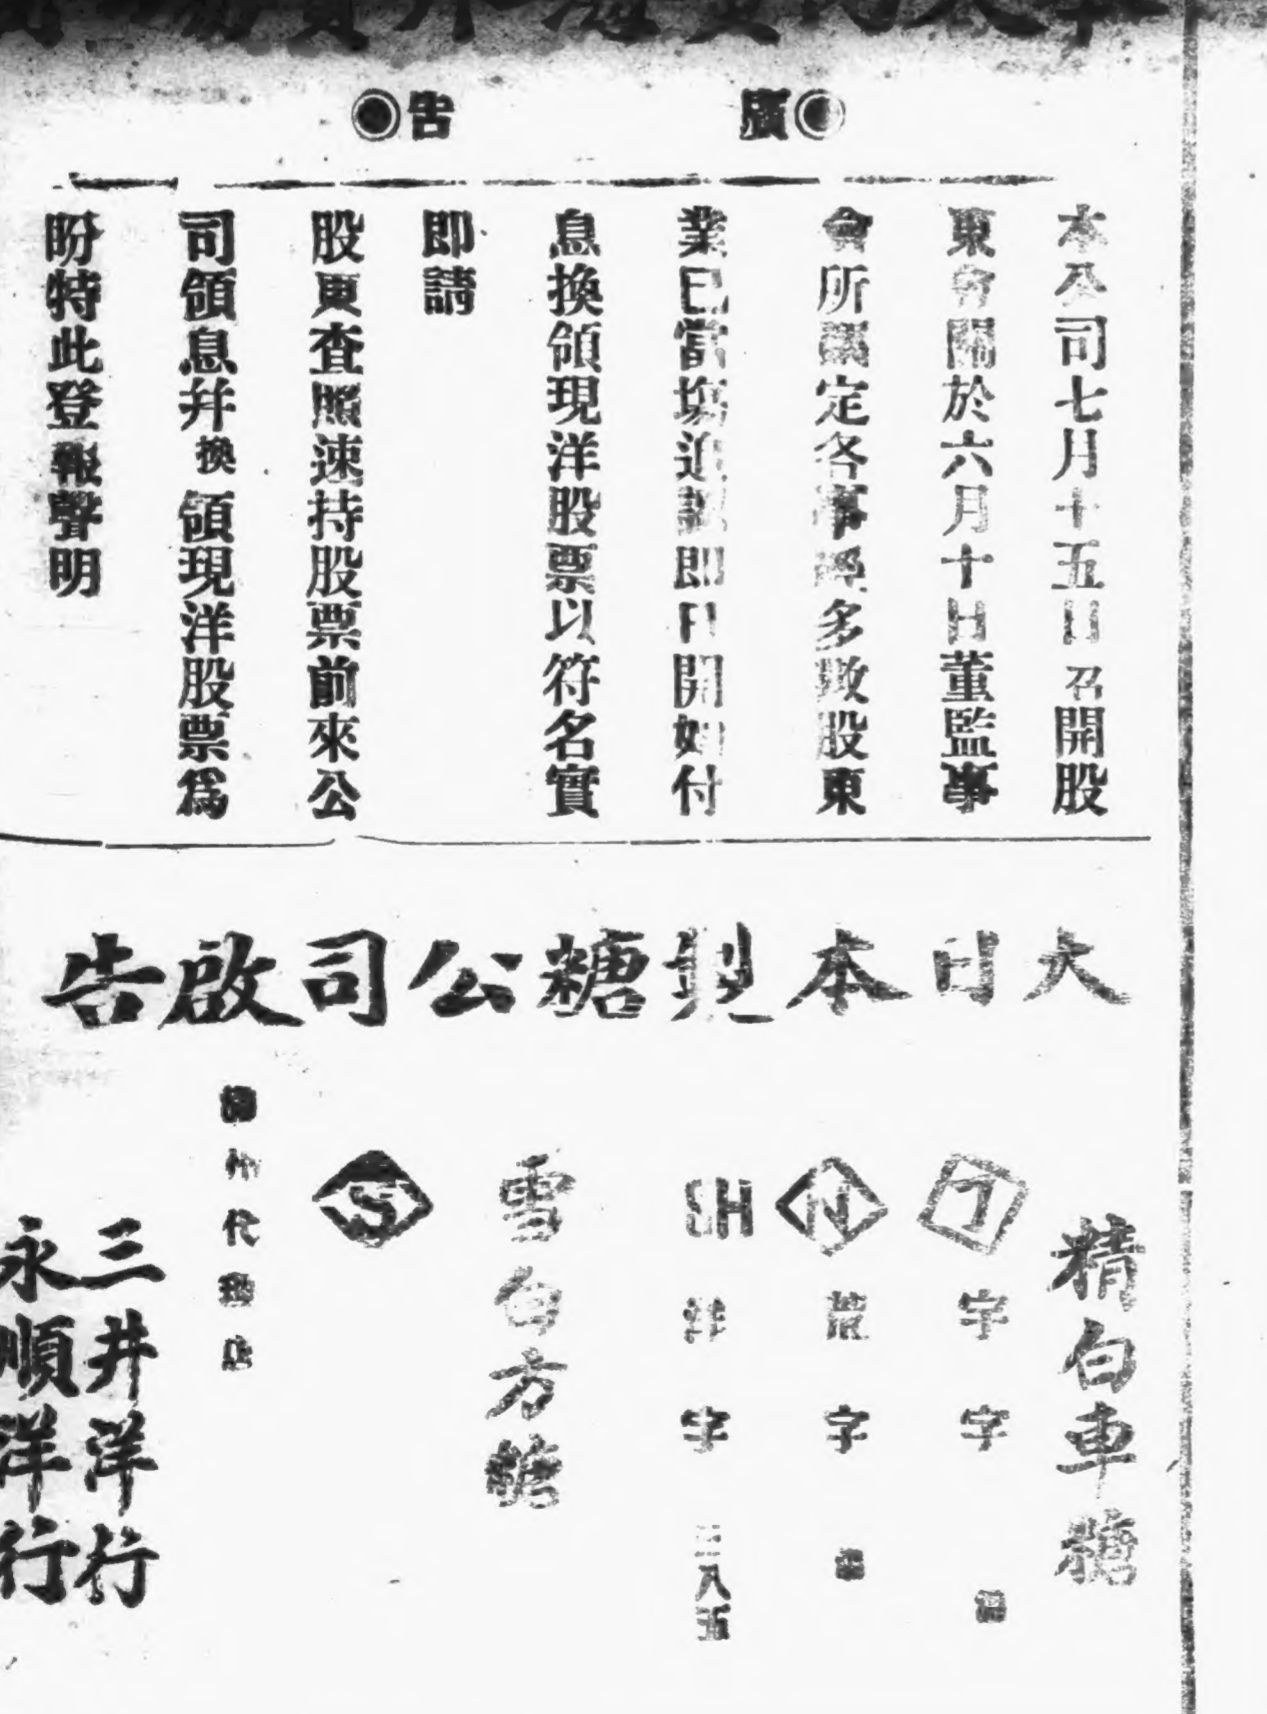 廣告
本公司七月十五日召開股
東會關於六月十日董監事
會所議定各事經多數股東
業已當塲追認即日開始付
息換領現洋股票以符名實
即請
股東查照速持股票前來公
司領息幷換領現洋股票爲
盼特此登報聲明
大日本製糖公司啟告
精白車糖
字字
N
荒字
SH
洋字
三八五
雪白方糖
S
州代理店
三井洋行
永順洋行